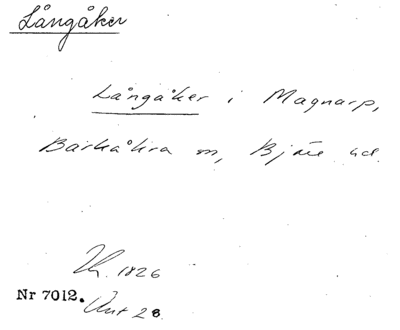 Långåker
Långåker i Magnarp,
Barkåkra sn, Bjäre hd.
Lh. 1826
Nr 7012.
Ant 28